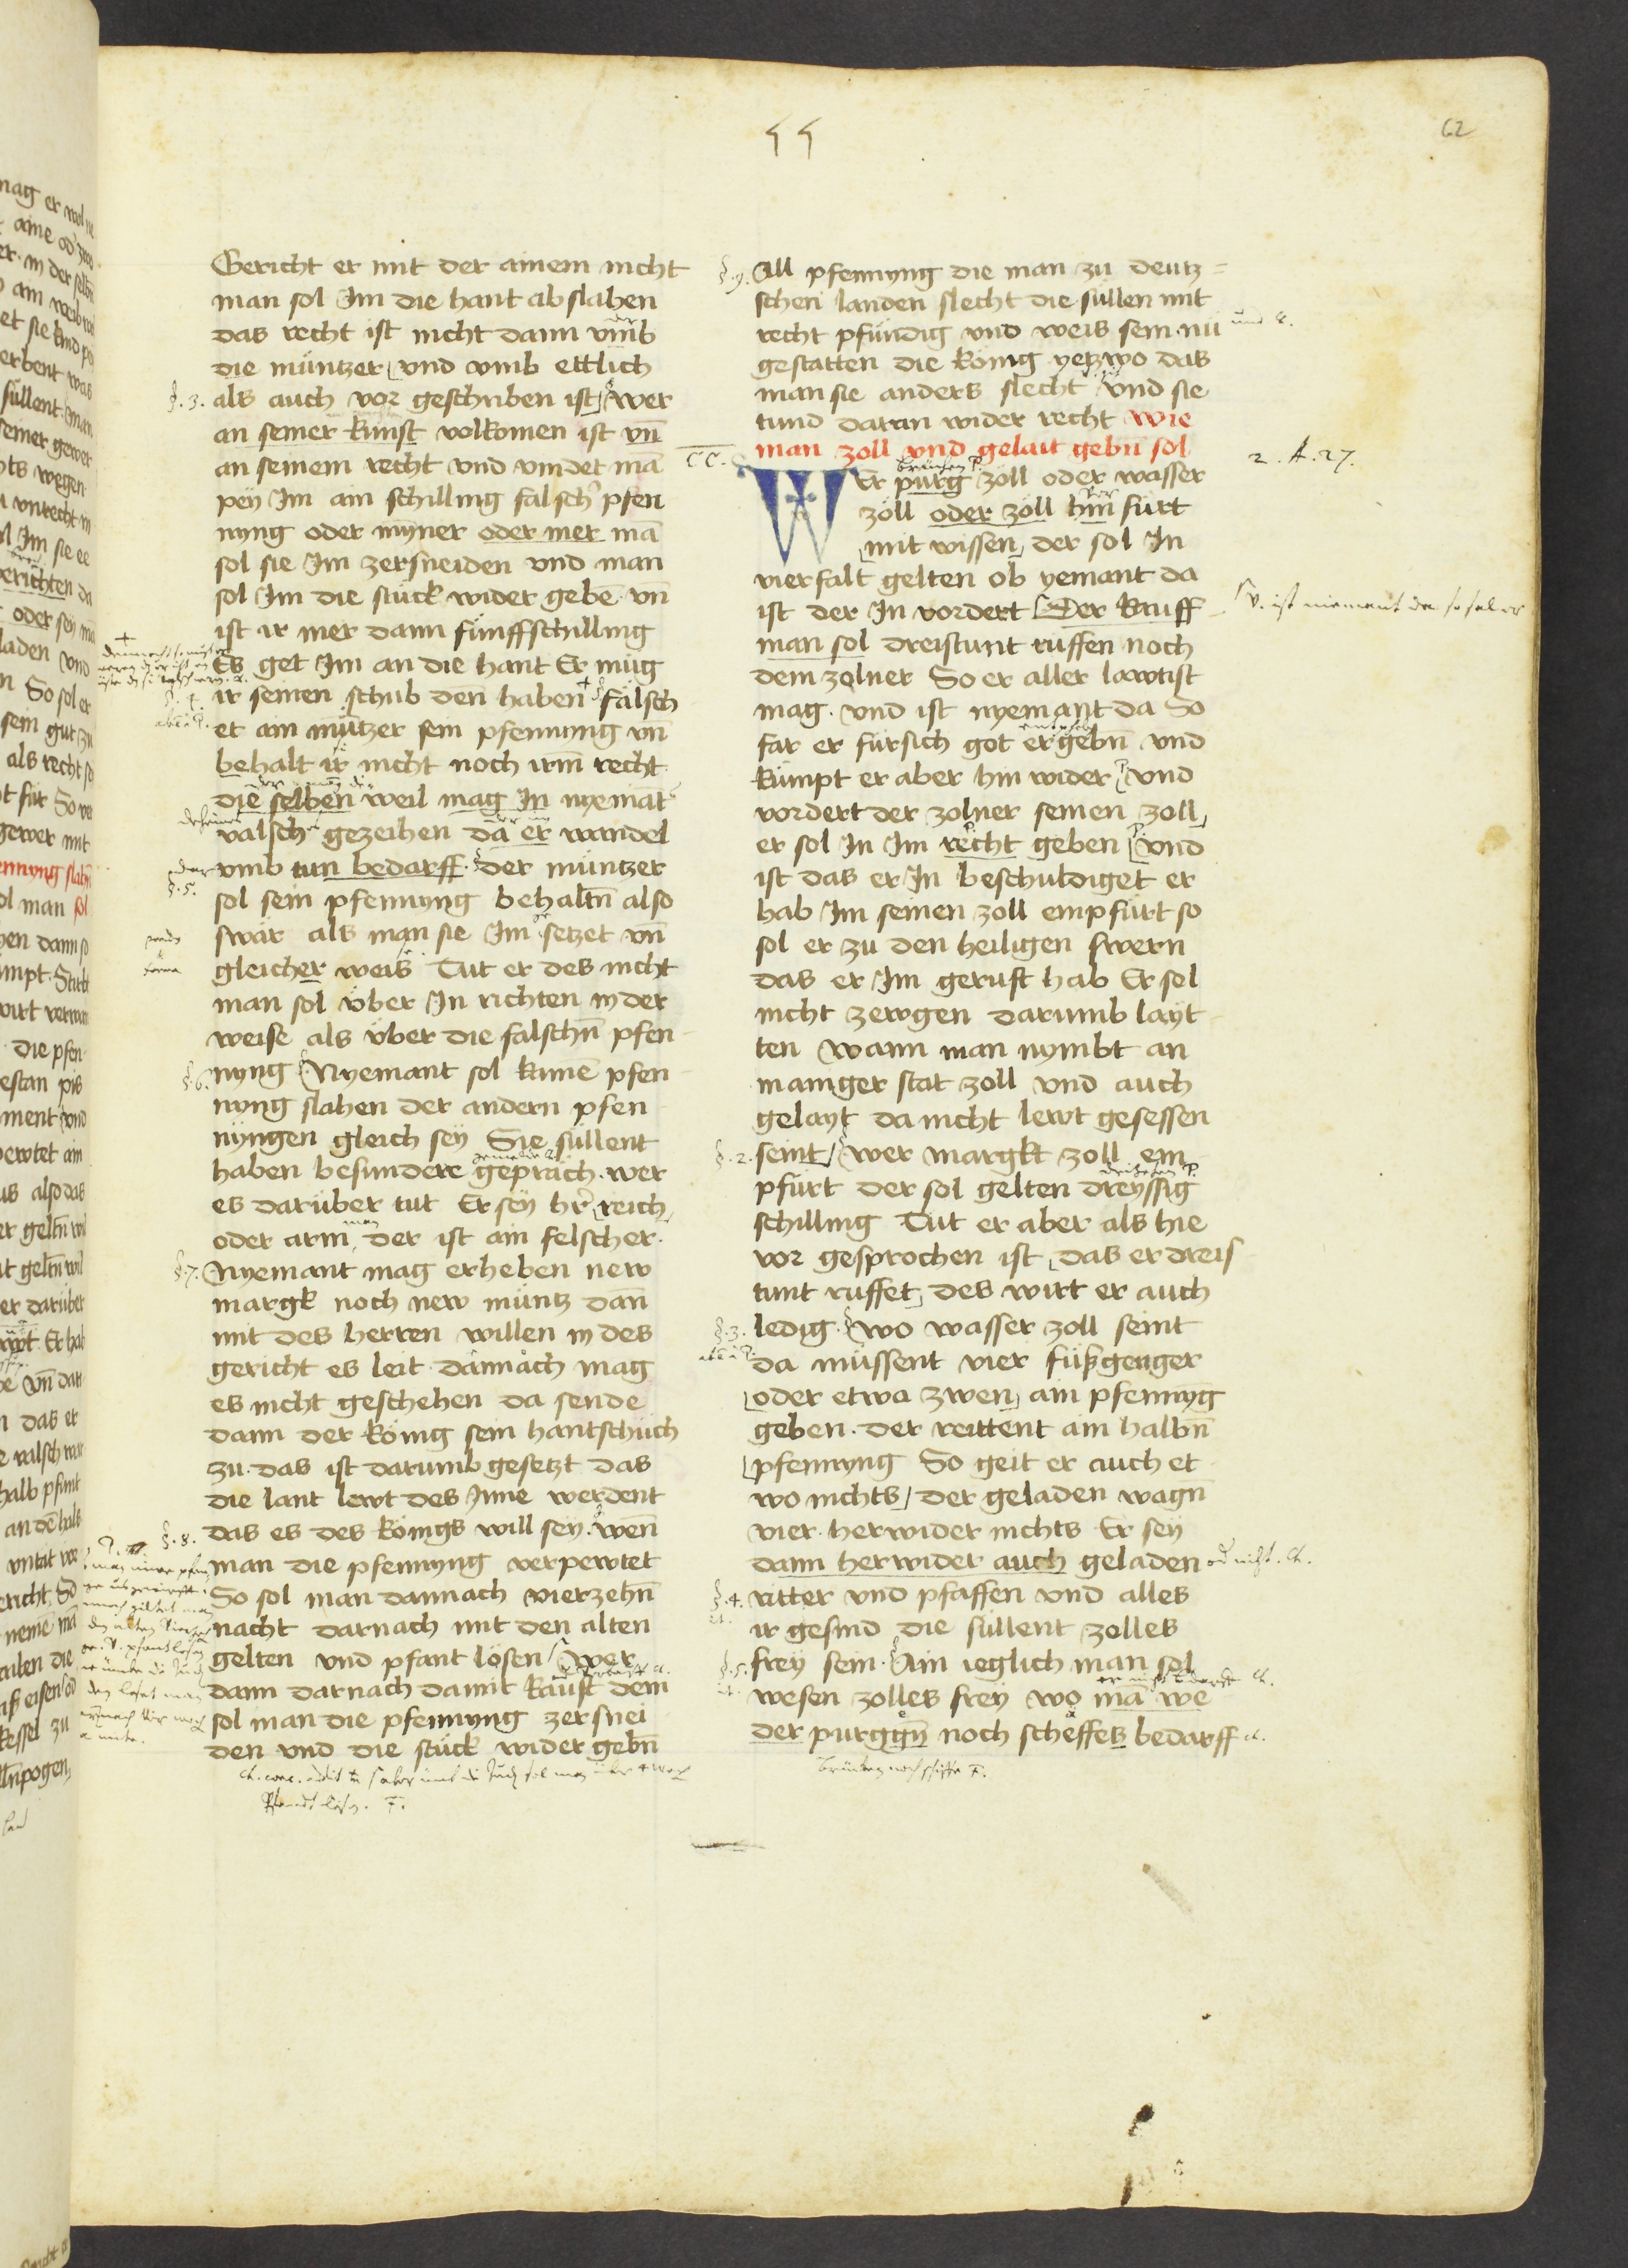 62
Gericht er mit der ainem nicht
man sol Im die hant abslahen
das recht ist nicht dann vmb
die müntzer vnd vmb ettlich
§. 3. als auch vor geschriben ist wer
an seiner kunst volkomen ist vn̄
an seinem recht vnd vindet mā
pey Im ain schilling falsch pfen
nyng oder myner oder mer mā
sol sie Im zersneiden vnd man
sol Im die stück wider gebē vn̄
ist ir mer dann fünffschilling
Es get Im an die hant Er müg
ir seinen schub den haben Falsch
et ain mütz̄er sein pfennyng vn̄
behalt ir nicht noch irm̄ recht
die selben weil mag In nyemāt
valsch gezeihen da er wandel
vmb tun bedarff. der müntzer
§. 5.
sol sein pfennyng behaltn̄ also
swär als man sie Im setzet vn̄
gleicher weis Tut er des nicht
man sol über In richten in der
weise als über die falschn̄ pfen
§. 6. nyng Nyemant sol kainē pfen
nyng slahen der andern pfen
nyngen gleich sey Sie süllent
haben besundere gepräch. wer
es darüber tut Er sey hr̄ reich
oder arm der ist ain felscher.
§. 7. Nyemant mag erheben new
margk noch new müntz dan̄
mit des herren willen in des
gericht es leit dannach mag
es nicht geschehen da sende
dann der König sein hantschüch
zu. das ist darumb gesetzt das
die lant lewt des Inne werdent
§. 8. das es des königs will sey. wen̄
man die pfennyng verpewtet
So sol man dannach vierzehn̄
nacht darnach mit den alten
gelten vnd pfant lösen wer
dann darnach damit kaüft dem
sol man die pfennyng zersnei
den vnd die stück wider gebn̄
§. 9. All pfennyng die man zu deutz=
schen landen slecht die süllen mit
recht pfündig vnd weis sein. nü
gestatten die König yetzwo das
man sie anders slecht vnd sie
tund daran wider recht wie
man zoll vnd gelait gebn̄ sol
CC.
2. A. 27.
WEr purg zoll oder wasser
zoll oder zoll hin fürt
mit wissen der sol In
vierfalt gelten ob yemant da
ist der In vordert Der kauff
V. ist niemant da so sol er
man sol dreistunt ruffen noch
dem zolner So er aller lawtist
mag. vnd ist nyemant da So
far er fürsich got ergebn̄ vnd
kümpt er aber hin wider vnd
vordert der zolner seinen zoll
er sol In Im recht geben vnd
ist das er In beschuldiget er
hab Im seinen zoll empfürt so
sol er zu den heiligen swern
das er Im geruft hab Er sol
nicht zewgen darumb layt
ten wann man nymbt an
mainger stat zoll vnd auch
gelayt da nicht lewt gesessen
§. 2. seint wer margkt zoll em
pfürt der sol gelten dreyssig
schilling Tut er aber als hie
vor gesprochen ist das er dreis
tunt ruffet des wirt er auch
§. 3. ledig. wo wasser zoll seint
da müssent vier füßgenger
oder etwa zwen ain pfennyg
geben. der reittent ain halbn̄
pfennyng So geit er auch et
wo nichts der geladen wagn̄
vier. herwider nichts Er sey
dann herwider auch geladen
§. 4. ritter vnd pfaffen vnd alles
ir gesind die süllent zolles
§. 5. frey sein. Ain ieglich man sol
wesen zolles frey wo mā we
der purggn̄ noch scheffes bedarff